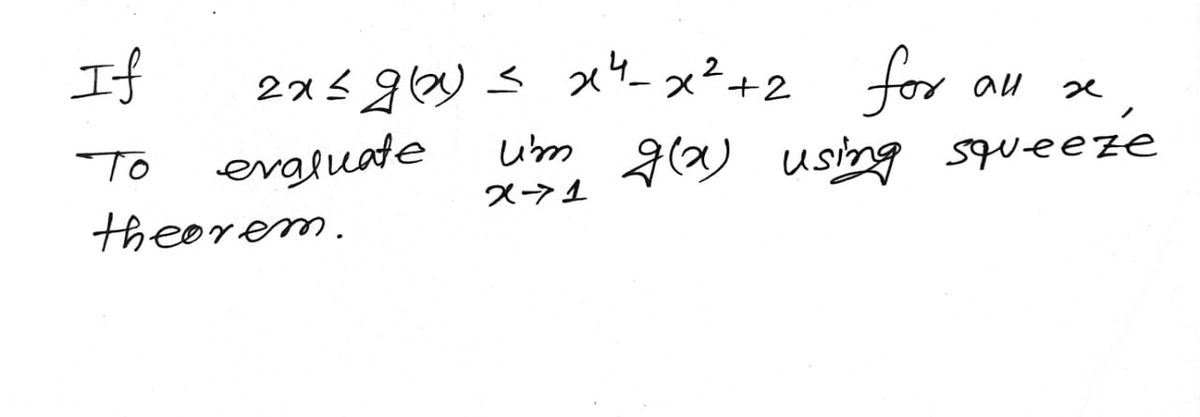 If 2x ≤ g(x) ≤ x⁴ - x² + 2 for all x,
To evaluate lim x→1 g(x) using squeeze
theorem.